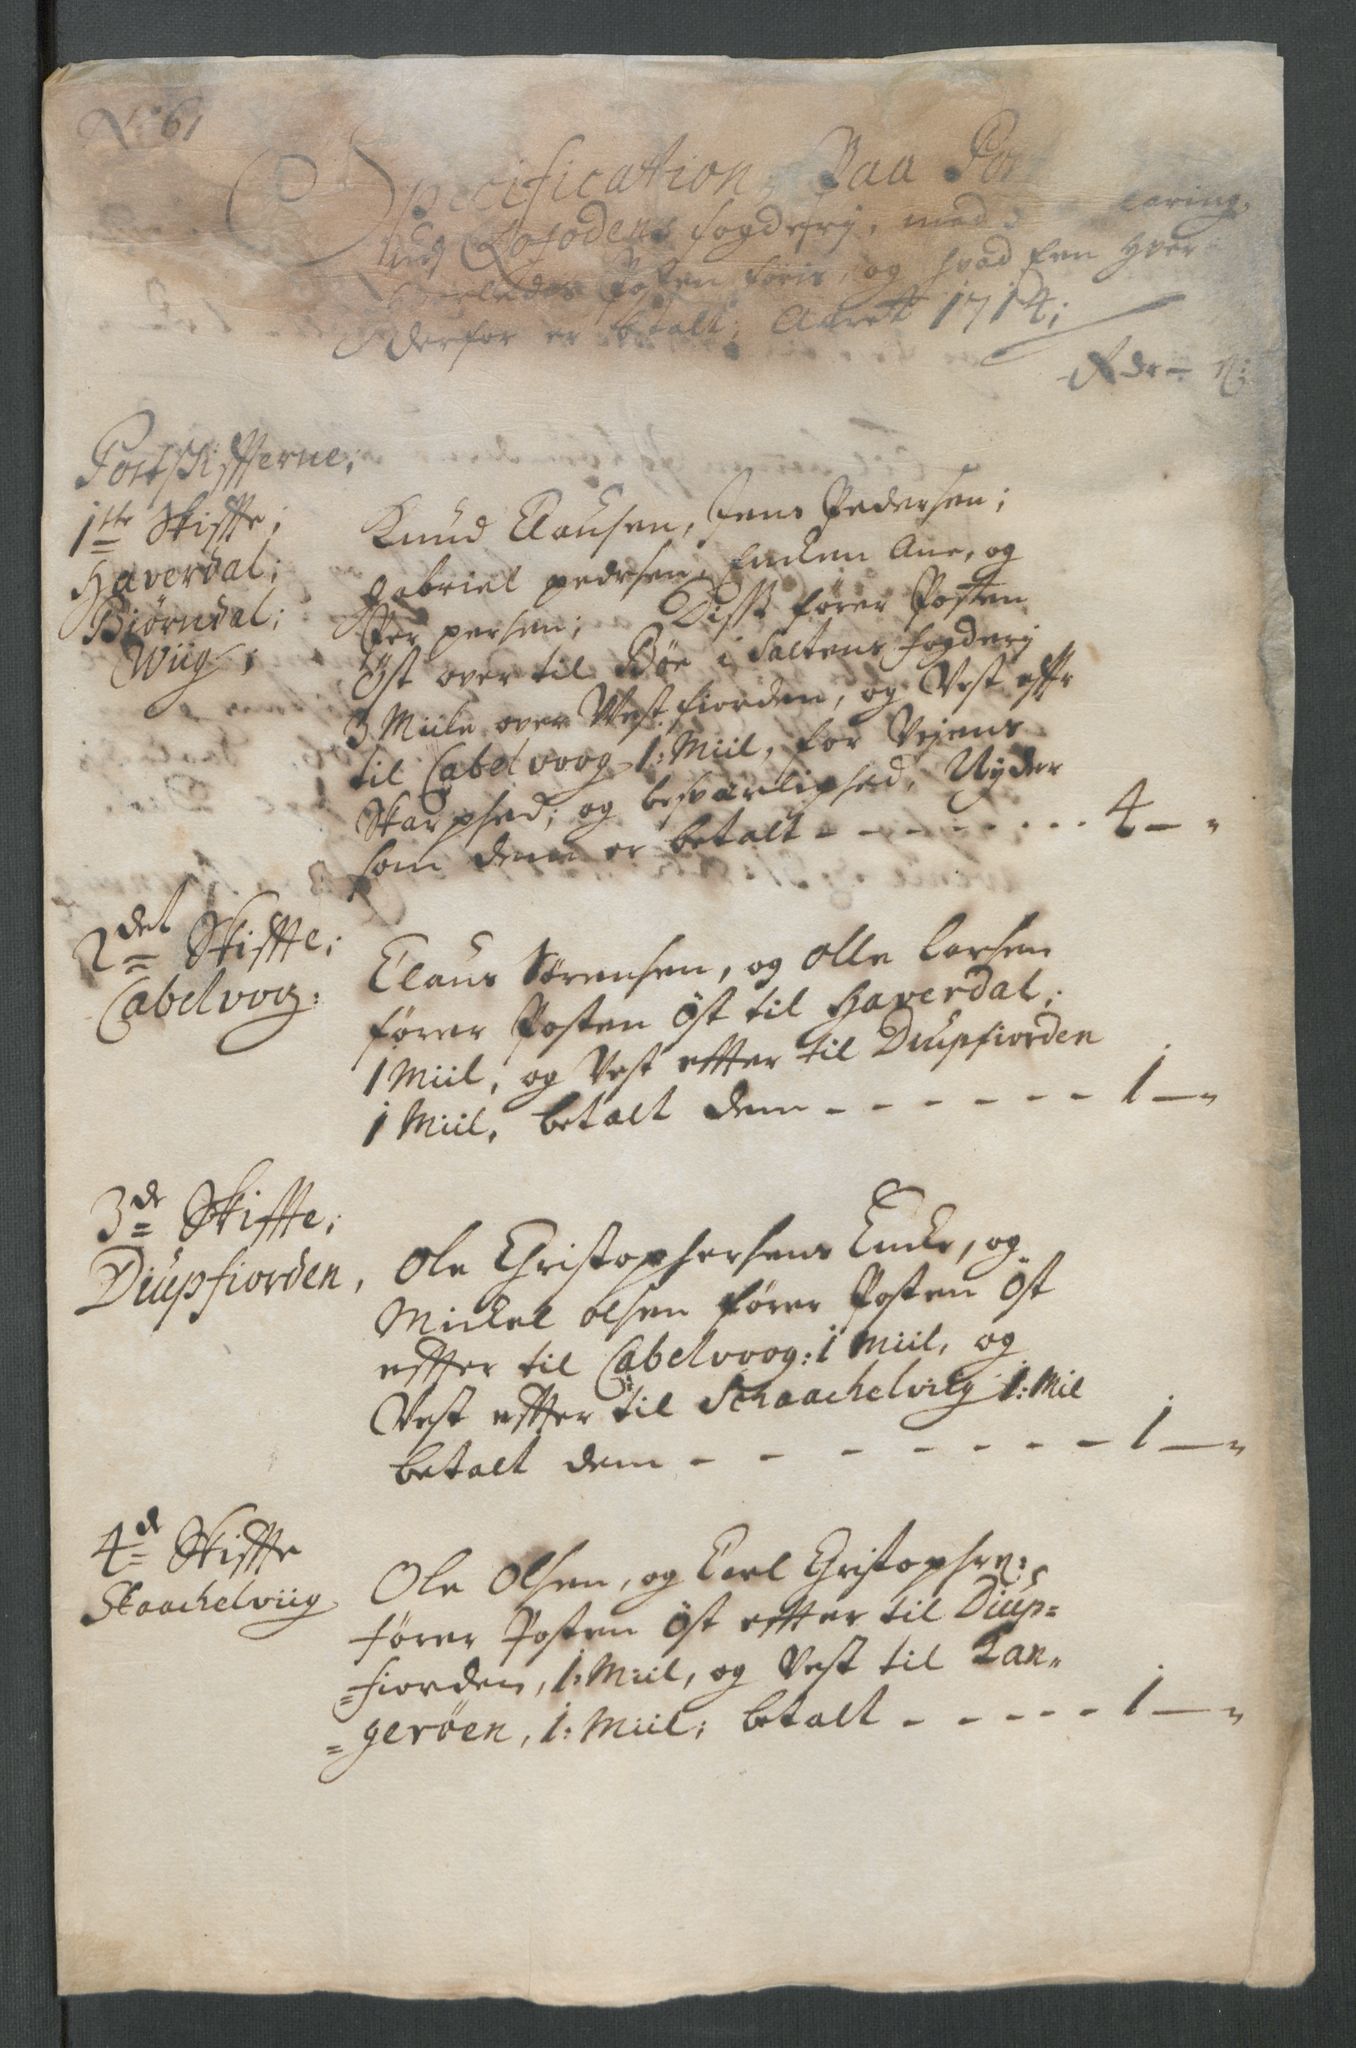 No 61
Specification, Paa Po
udj Lofodens fogderj, med laring,
Hvorledes Posten føris, og hvad hen hver
derfor er betalt, Aaret 1714;
Rdr — ß:
Postskiffterne;
1te Skiffte;
Haverdal;
Biørndal;
Wiig;
Knud Clausen, Jens Pedersen;
gabriel pedersen, Encken Ane, og
Per persen; Disse fører Posten
Øst over til Bøe i Saltens fogderj
3 Miile over Westfiorden, og Vest effter
til Cabelvoog 1: Miil, for Vejens
Skarphed, og besværlighed, Nyder
som dem er betalt - - - - - - - - 4 — „
2det Skiffte;
Cabelvog:
Claus Sørensen, og Olle Larsen
fører Posten Øst til Haverdal;
1 Miil, og Vest effter til Diupfiorden
1 Miil, betalt dem - - - - - - 1 — „
3de Skiffte;
Diupfiorden,
Ole Christophersens Encke, og
Mickel olsen fører Posten Øst
effter til Cabelvoog: 1 Miil, og
Vest effter til Schaachelviig 1: Mil
betalt dem - - - - - - - 1 — „
4de Skiffte
Skaachelviig
Ole Olsen, og Carl Christophers:
fører Posten Øst effter til Diup=
=fiorden, 1: Miil, og Vest til Lan=
=gerøen, 1: Miil; betalt - - - - - 1 — „